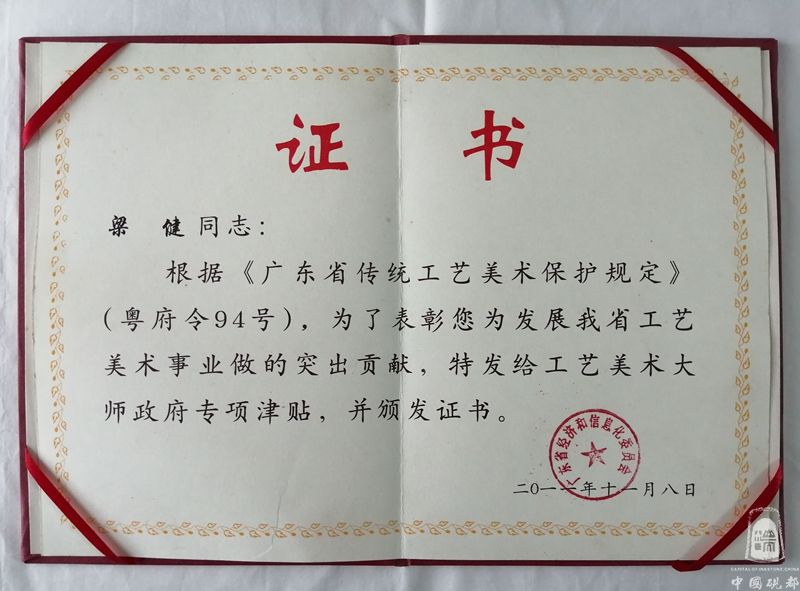 证书
梁 健同志：
根据《广东省传统工艺美术保护规定》
(粤府令94号)，为了表彰您为发展我省工艺
美术事业做的突出贡献，特发给工艺美术大
师政府专项津贴，并颁发证书。
广东省经济和信息化委员会
二〇一一年十一月八日
CAPITAL OF INKSTONE,CHINA
中國硯都